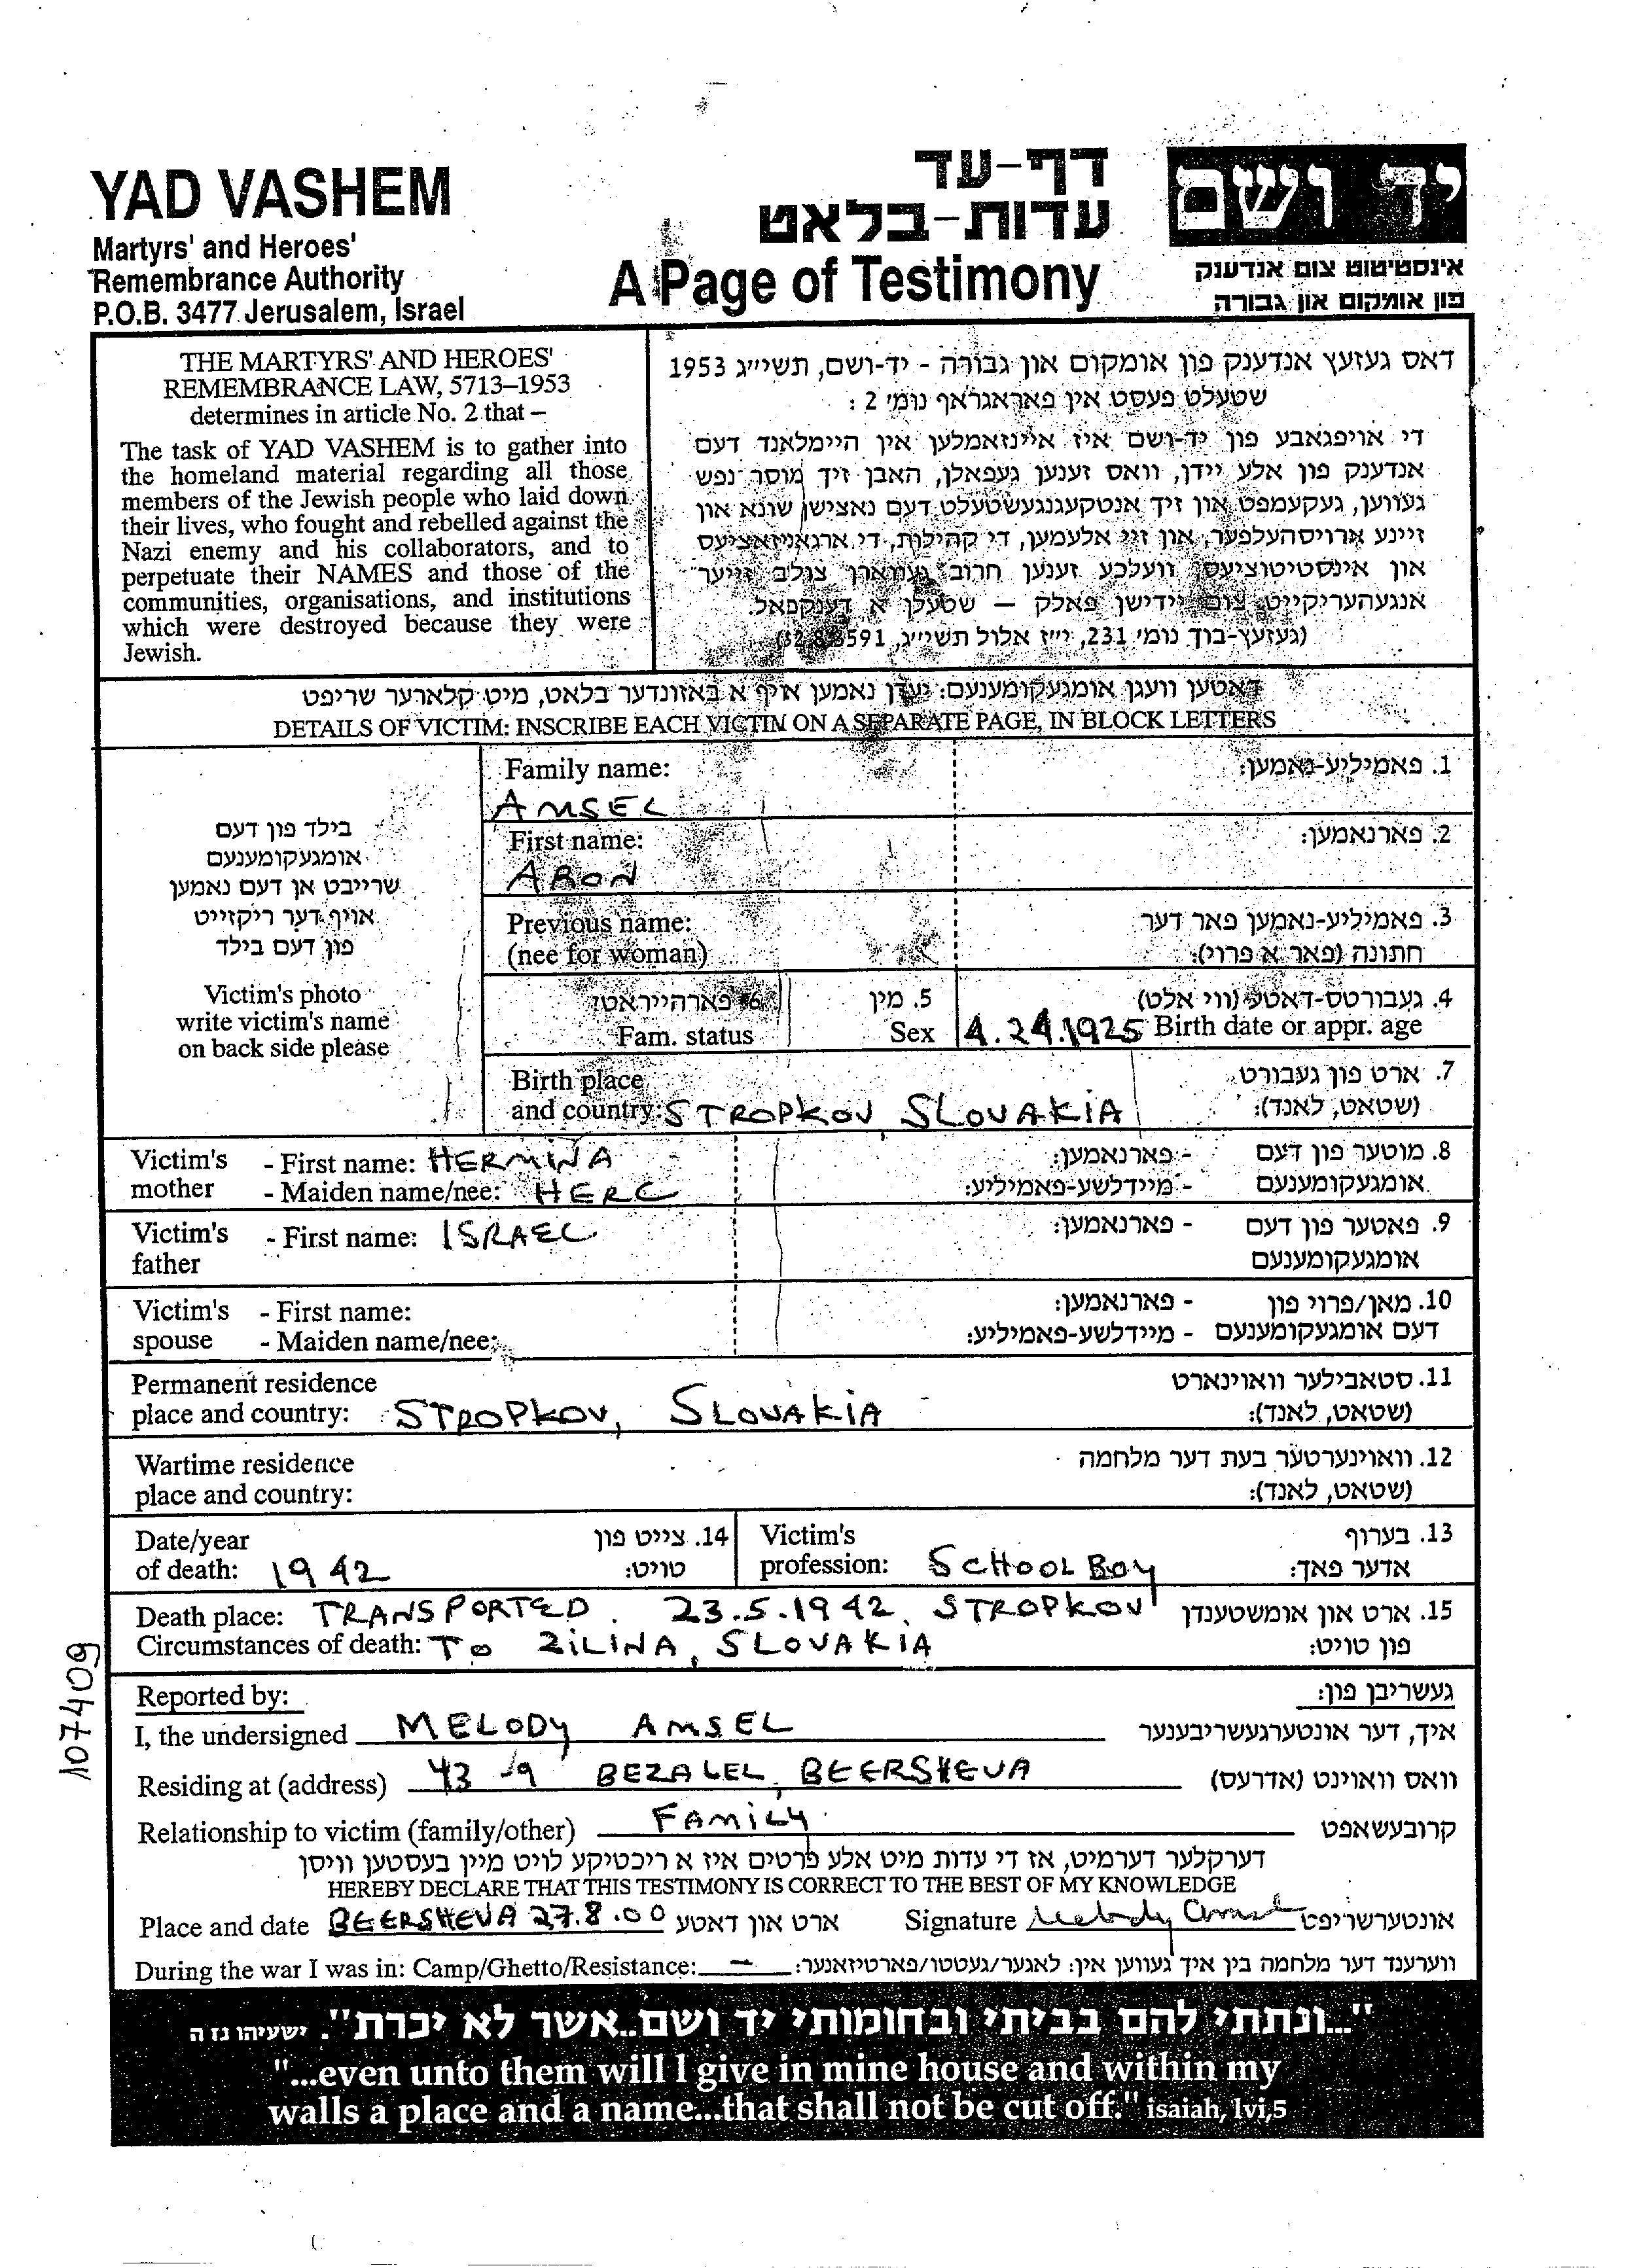 YAD VASHEM
Martyrs' and Heroes'
Remembrance Authority
P.O.B. 3477 Jerusalem, Israel
דף-עד
עדות-בלאט
A Page of Testimony
יד ושם
אינסטיטוט צום אנדענק
פון אומקום און גבורה
THE MARTYRS' AND HEROES'
REMEMBRANCE LAW, 5713–1953
determines in article No. 2 that –
The task of YAD VASHEM is to gather into
the homeland material regarding all those
members of the Jewish people who laid down
their lives, who fought and rebelled against the
Nazi enemy and his collaborators, and to
perpetuate their NAMES and those of the
communities, organisations, and institutions
which were destroyed because they were
Jewish.
דאס געזעץ אנדענק פון אומקום און גבורה - יד-ושם, תשי״ג 1953
שטעלט פעסט אין פאראגראף נומ׳ 2 :
די אויפגאבע פון יד-ושם איז איינזאמלען אין היימלאנד דעם
אנדענק פון אלע יידן, וואס זענען געפאלן, האבן זיך מוסר נפש
געווען, געקעמפט און זיך אנטקעגנגעשטעלט דעם נאצישן שונא און
זיינע ארויסהעלפער, און זיי אלעמען, די קהילות, די ארגאניזאציעס
און אינסטיטוציעס, וועלכע זענען חרוב געווארן צוליב זייער
אנגעהעריקייט צום יידישן פאלק — שטעלן א דענקמאל.
(געזעץ-בוך נומ׳ 231, י״ז אלול תשי״ג,
דאטען וועגן אומגעקומענעם: יעדן נאמען אויף א באזונדער בלאט, מיט קלארער שריפט
DETAILS OF VICTIM: INSCRIBE EACH VICTIN ON A SEPARATE PAGE, IN BLOCK LETTERS
בילד פון דעם
אומגעקומענעם
שרייבט אן דעם נאמען
אויף דער ריקזייט
פון דעם בילד
Victim's photo
write victim's name
on back side please
Family name: 1. פאמיליע-נאמען:
AMSEL
First name: 2. פארנאמען:
ARON
Previous name: 3. פאמיליע-נאמען פאר דער
(nee for woman) חתונה (פאר א פרוי):
6. פארהייראט: 5. מין 4. געבורטס-דאטע (ווי אלט)
Fam. status Sex 4.24.1925 Birth date or appr. age
Birth place 7. ארט פון געבורט
and country: STROPKOV, SLOVAKIA (שטאט, לאנד):
Victim's - First name: HERMINA - פארנאמען: 8. מוטער פון דעם
mother - Maiden name/nee: HERC - מיידלשע-פאמיליע: אומגעקומענעם
Victim's - First name: ISRAEL - פארנאמען: 9. פאטער פון דעם
father אומגעקומענעם
Victim's - First name: - פארנאמען: 10. מאן/פרוי פון
spouse - Maiden name/nee: - מיידלשע-פאמיליע: דעם אומגעקומענעם
Permanent residence 11. סטאבילער וואוינארט
place and country: STROPKOV, SLOVAKIA (שטאט, לאנד):
Wartime residence 12. וואוינערטער בעת דער מלחמה
place and country: (שטאט, לאנד):
Date/year 14. צייט פון Victim's 13. בערוף
of death: 1942 טויט: profession: SCHOOL BOY אדער פאך:
Death place: TRANSPORTED. 23.5.1942, STROPKOV 15. ארט און אומשטענדן
Circumstances of death: TO ZILINA, SLOVAKIA פון טויט:
107409
Reported by: געשריבן פון:
I, the undersigned MELODY AMSEL איך, דער אונטערגעשריבענער
Residing at (address) 43-9 BEZALEL, BEERSHEVA וואס וואוינט (אדרעס)
Relationship to victim (family/other) FAMILY קרובעשאפט
דערקלער דערמיט, אז די עדות מיט אלע פרטים איז א ריכטיקע לויט מיין בעסטען וויסן
HEREBY DECLARE THAT THIS TESTIMONY IS CORRECT TO THE BEST OF MY KNOWLEDGE
Place and date BEERSHEVA 27.8.00 ארט און דאטע Signature Melody Amsel אונטערשריפט
During the war I was in: Camp/Ghetto/Resistance: – ווערענד דער מלחמה בין איך געווען אין: לאגער/געטטו/פארטיזאנער:
"...ונתתי להם בביתי ובחומותי יד ושם..אשר לא יכרת". ישעיהו נז ה
"...even unto them will I give in mine house and within my
walls a place and a name...that shall not be cut off." isaiah, lvi,5